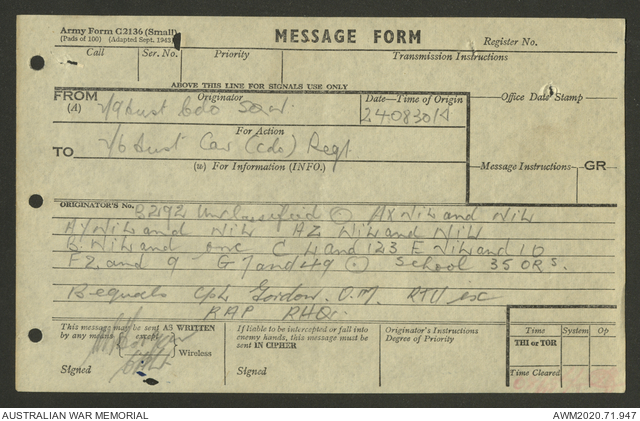 Army Form C2136 (Small)
(Pads of 100) (Adapted Sept. 1943)
MESSAGE FORM
Register No.
Call Ser. No. Priority Transmission Instructions
ABOVE THIS LINE FOR SIGNALS USE ONLY
FROM
(A)
Originator
2/9 Aust Cdo Sqn.
Date—Time of Origin
240830K
Office Date Stamp
For Action
TO
2/6 Aust Cav (Cdo) Regt
(w) For Information (INFO.)
Message Instructions GR
ORIGINATOR'S No.
B292 Unclassified ⊙ AX NIL and NIL
AY NIL and NIL AZ NIL and NIL
B NIL and one C 4 and 123 E NIL and 10
F 2 and 9 G 7 and 49 ⊙ School 35 ORs.
B equals Cpl Gordon. O.M. RTU ex
RAP RHQ.
This message may be sent AS WRITTEN
by any means { except
Wireless
Signed
If liable to be intercepted or fall into
enemy hands, this message must be
sent IN CIPHER
Signed
Originator's Instructions
Degree of Priority
Time System Op
THI or TOR
Time Cleared
AUSTRALIAN WAR MEMORIAL
AWM2020.71.947